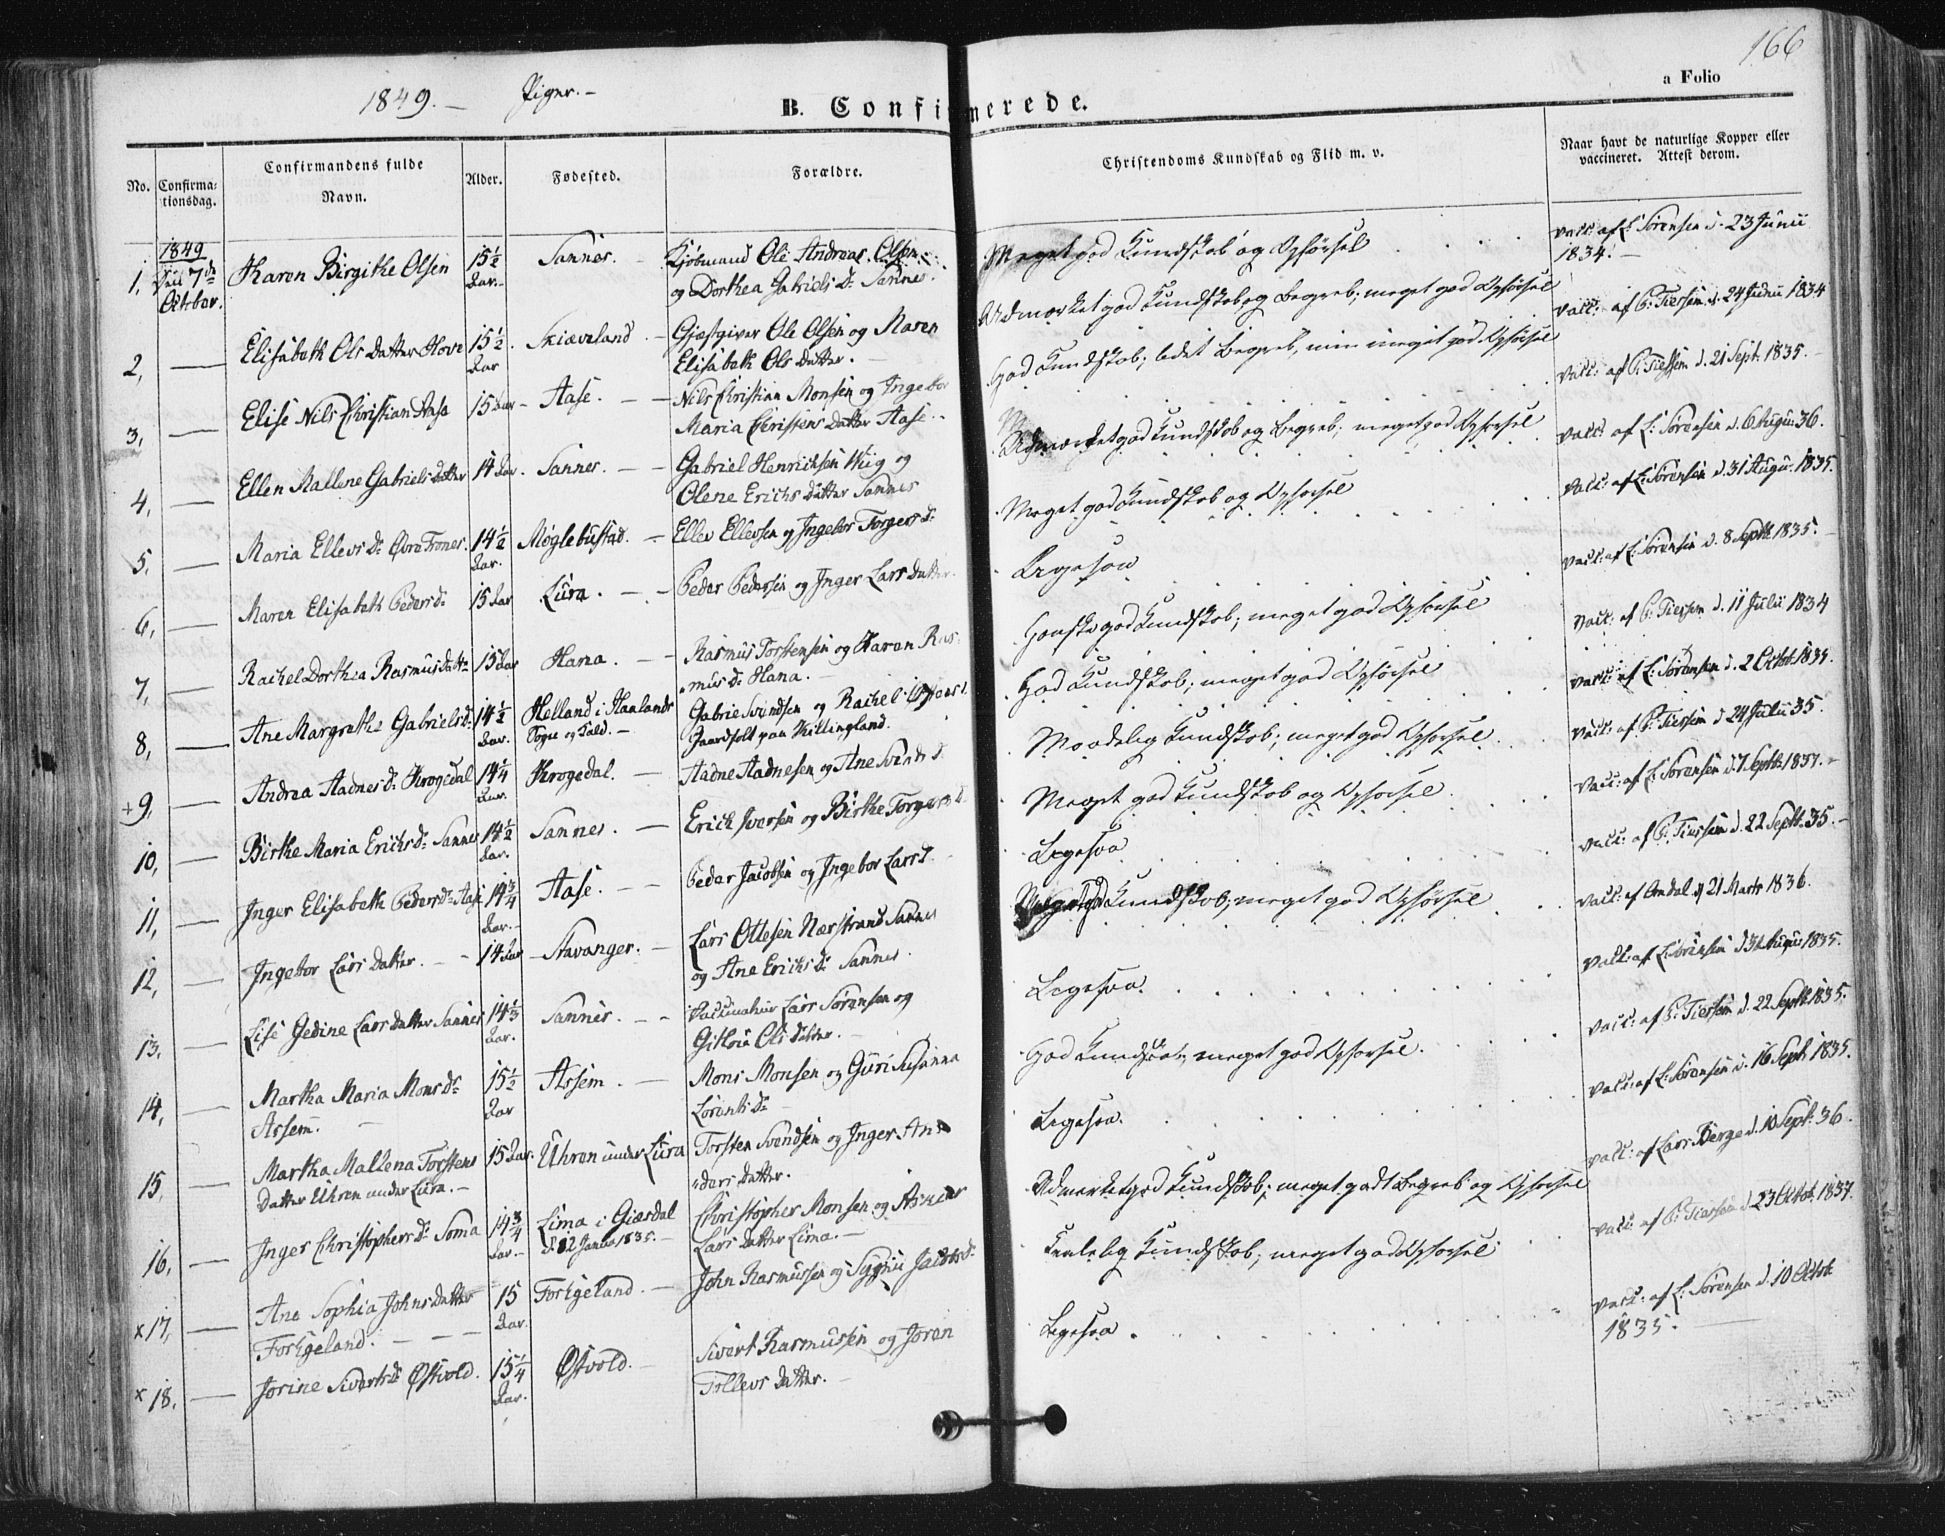 166
a Folio
1849.— Piger.—
B. Confirmerede.
No.
Confirmationsdag.
Confirmandens fulde
Navn.
Alder.
Fødested.
Forældre.
Christendoms Kundskab og Flid m. v.
Naar havt de naturlige Kopper eller
vaccineret. Attest derom.
1849
1, Den 7de Octobar. Karen Birgithe Olsen 15½ Aar. Sannes. Kjøbmand Ole Andreas Olsen
og Dorthea Gabriels D. Sannes.
Meget god Kundskab og Opførsel vacc: af L: Sørensen d. 23 Junii
1834.—
2, — Elisabeth Ols Datter Hove 15½ Aar Skiæveland Gjæstgiver Ole Olsen og Maren
Elisabeth Ols Datter.
Udmærket god Kundskab og Begreb; meget god Opførsel vacc: af P: Tiersem d. 24 Junii 1834
3, — Elise Nils Christian Aase 15 Aar Aase. Nils Christian Monsen og Ingebor
Maria Christens Datter Aase.
God Kundskab; meget god Opførsel vacc: af P: Tiersem d. 21 Sept. 1835.
4, — Ellen Mallene Gabriels Datter 14 Aar. Sannes. Gabriel Henrichsen Wiig og
Olene Erichs Datter Sannes
Udmærket god Kundskab og Begreb; meget god Opførsel vacc: af L: Sørensen d. 6 Augu: 36.
5, — Maria Ellevs D. Øvre Trones. 14½ Aar. Møglebustad. Ellev Ellevsen og Ingebor Torgers D.
Meget god Kundskab og Opførsel vacc: af L: Sørensen d. 31 Augu: 1835.
6, — Maren Elisabeth Peders D. 15 Aar Lura. Peder Pedersen og Inger Lars Datter.
Ligesaa vacc: af L: Sørensen d. 8 Septb 1835.
7, — Rachel Dorthea Rasmus Datter 15 Aar Hana. Rasmus Torstensen og Karen Ras-
mus D. Hana.
Ganske god Kundskab; meget god Opførsel vacc: af P: Tiersem d. 11 Julii 1834
8, — Ane Margrethe Gabriels d. 14½ Aar. Helland i Haalands
Sogn og Gald.— Gabriel Svendsen og Rachel
Gaardfolk paa Killingland.
God Kundskab; meget god Opførsel vacc: af L: Sørensen d. 2 Octob. 1835.
+9, — Andrea Aadnes D. Krogedal 14¼ Aar. Krogedal. Aadne Aadnesen og Ane Svends d.
Maadelig Kundskab; meget god Opførsel. vacc: af P: Tiersem d. 24 Julii 35.
10, — Birthe Maria Erichs D. Sannes 14½ Aar. Sannes. Erich Iversen og Birthe Torgers D.
Meget god Kundskab og Opførsel. vacc: af L: Sørensen d. 7 Septb. 1837.
11, — Inger Elisabeth Peders D. Aase 14¾ Aar. Aase. Peder Jacobsen og Ingebor Lars D.
Ligesaa vacc: af P: Tiersem d. 22 Septb. 35.
12, — Ingebor Lars Datter. 14 Aar Stavanger. Lars Ottesen Nærstrand Sannes
og Ane Erichs D. Sannes.
Kundskab; meget god Opførsel vacc: af Omdal d 21 Marts 1836.
13, — Lise Gedine Lars Datter Sannes 14⅓ Aar. Sannes. Vaccinateur Lars Sørensen og
Ols Datter.
Ligesaa. vacc: af L: Sørensen d 31 Augu: 1835.
14, — Martha Maria Mons D.
Assem. 15½ Aar Assem. Mons Monsen og Guri Susanna
Lorents D.
God Kundskab; meget god Opførsel. vacc: af P: Tiersem d. 22 Septb 1835.
15, — Martha Mallena Torstens
Datter Uhren under Lura.— 15 Aar. Uhren under Lura Torsten Svendsen og Inger An-
ders Datter.
Ligesaa. vacc: af L: Sørensen d. 16 Sept 1835.
16, — Inger Christophers D. Soma 14¾ Aar. Lima i Giæsdal
d. 12 Janua 1835.— Christopher Monsen og
Lars Datter Lima.—
Udmærket god Kundskab; meget godt Begreb og Opførsel vacc: af Lars Berge d. 10 Sept: 36.
x17, — Ane Sophia Johns Datter
Forsgeland. 15 Aar. Forsgeland. John Rasmussen og Jacobs D.
Kundskab; meget god Opførsel vacc: af P: Tiersem d. 23 Octob. 1837.
x18, — Jorine Siverts D. Østvold. 15¼ Aar. Østvold.— Sivert Rasmussen og Joran
Tollevs Datter.—
Ligesaa. vacc: af L: Sørensen d. 10 Octob
1835.